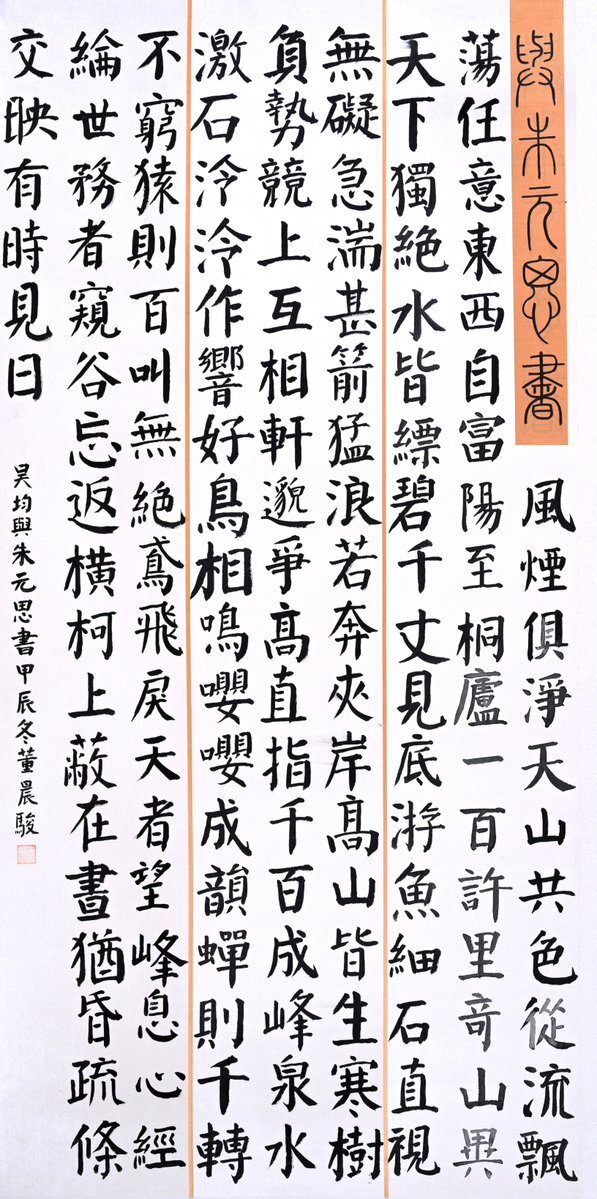 與朱元思書
風煙俱淨天山共色從流飄
蕩任意東西自富陽至桐廬一百許里奇山異
天下獨絕水皆縹碧千丈見底游魚細石直視
無礙急湍甚箭猛浪若奔夾岸髙山皆生寒樹
負勢競上互相軒邈爭髙直指千百成峰泉水
激石泠泠作響好鳥相鳴嚶嚶成韻蟬則千轉
不窮猿則百叫無絕鳶飛戾天者望峰息心經
綸世務者窺谷忘返橫柯上蔽在晝猶昏疏條
交映有時見日
吴均與朱元思書甲辰冬董晨駿